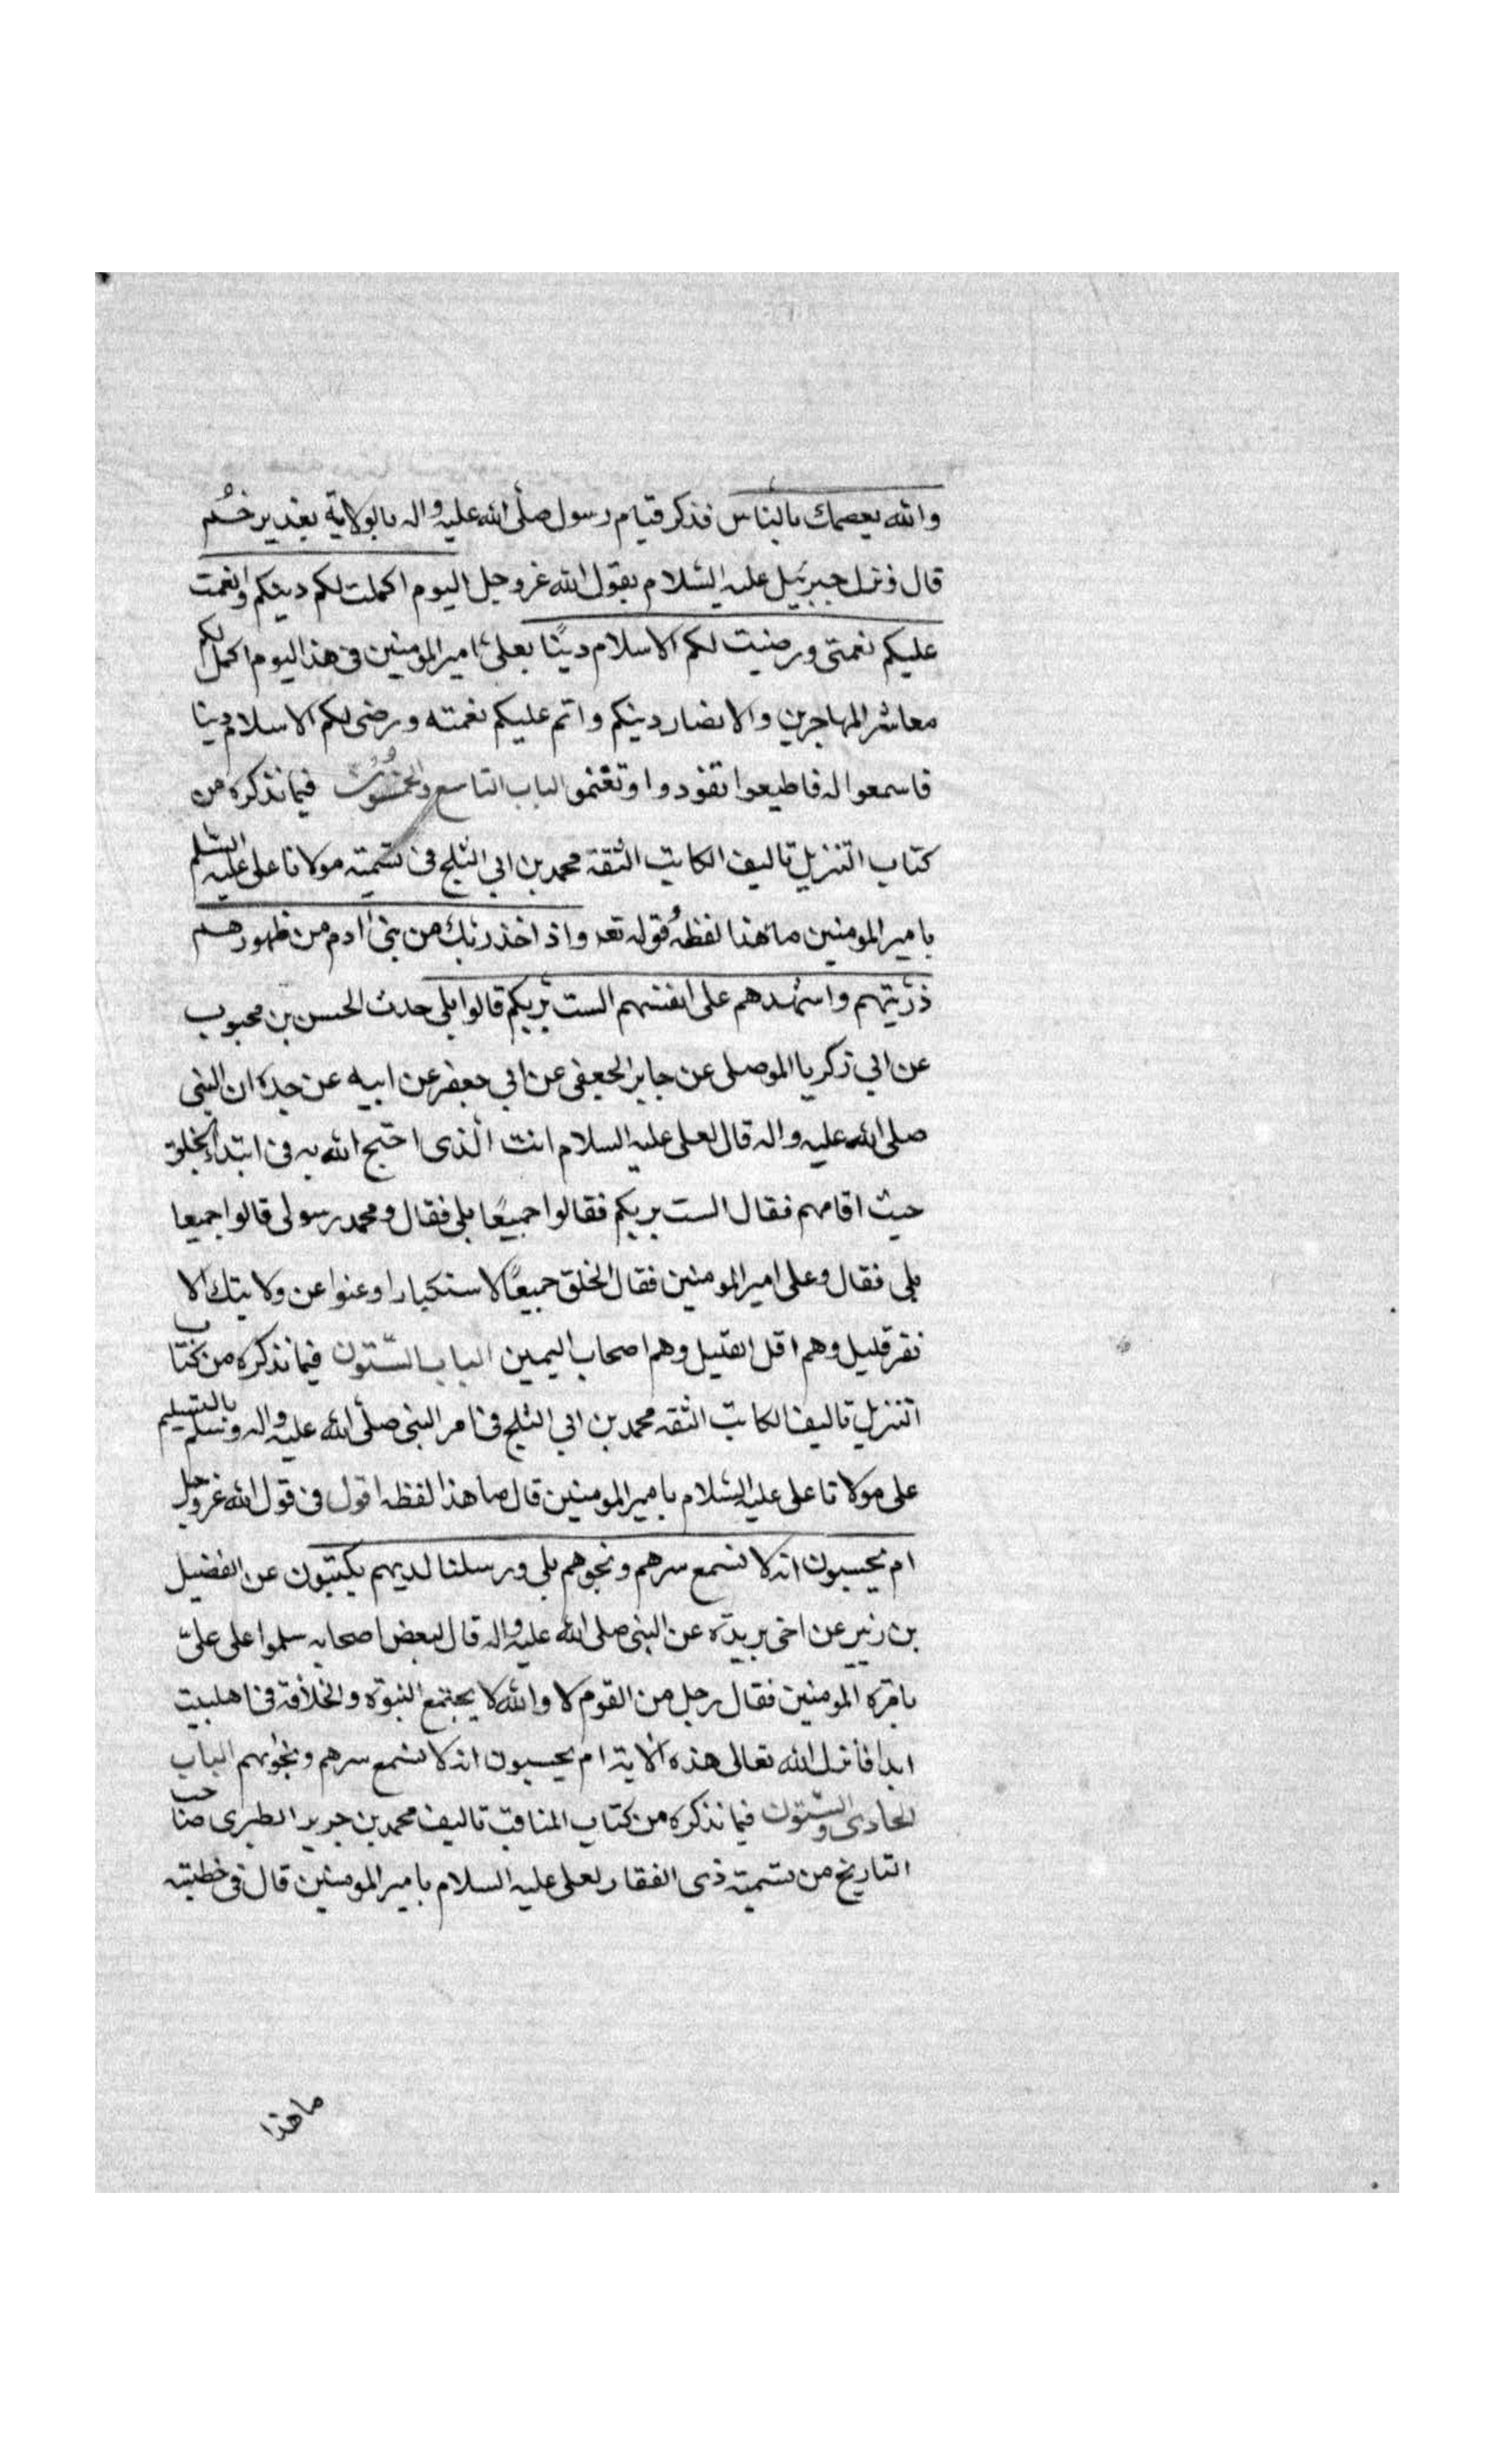 والله يعصمك بالناس فذكر قيام رسول صلى الله عليه واله بالولاية بغدير خم
قال ونزل جبرئيل عليه السلام بقول الله عز وجل اليوم اكملت لكم دينكم واتممت
عليكم نعمتى ورضيت لكم الاسلام دينًا بعلى امير المومنين فى هذا اليوم اكمل لكم
معاشر المهاجرين والانصار دينكم واتم عليكم نعمته ورضى لكم الاسلام دينا
فاسمعوا له فاطيعوا تفوذوا وتغنموا الباب التاسع والخمسون فيما نذكره من
كتاب التنزيل تاليف الكاتب الثقة محمد بن ابي الثلج فى تسمية مولانا على عليه السلم
بامير المومنين ما هذا لفظه قوله تعه واذ اخذ ربك من بنى ادم من ظهورهم
ذريتهم واشهدهم على انفسهم الست بربكم قالوا بلى حدث الحسن بن محبوب
عن ابي زكريا الموصلى عن جابر الجعفى عن ابي جعفر عن ابيه عن جده ان النبى
صلى الله عليه واله قال لعلى عليه السلام انت الذى احتج الله به فى ابتداء الخلق
حيث اقامهم فقال الست بربكم فقالوا جميعًا بلى فقال ومحمد رسولى قالوا جميعا
بلى فقال وعلى امير المومنين فقال الخلق جميعًا لا استكبارا وعنوا عن ولايتك الا
نفر قليل وهم اقل القليل وهم اصحاب اليمين الباب الستون فيما نذكره من كتاب
التنزيل تاليف الكاتب الثقه محمد بن ابي الثلج فى امر النبى صلى الله عليه واله وسلم بالتسليم
على مولانا على عليه السلام بامير المومنين قال ما هذا لفظه اقول فى قول الله عز وجل
ام يحسبون انه لا نسمع سرهم ونجوهم بلى ورسلنا لديهم يكتبون عن الفضيل
بن زبير عن اخى بريدة عن النبى صلى الله عليه واله قال لبعض اصحابه سلموا على على
بامره المومنين فقال رجل من القوم لا والله لا يجتمع النبوة والخلافة فى اهلبيت
ابدا فأنزل الله تعالى هذه الاية ام يحسبون انه لا نسمع سرهم ونجوهم الباب
الحادى والستون فيما نذكره من كتاب المناقب تاليف محمد بن جرير الطبرى صاحب
التاريخ من تسمية ذى الفقار لعلى عليه السلام بامير المومنين قال فى خطبته
ما هذا